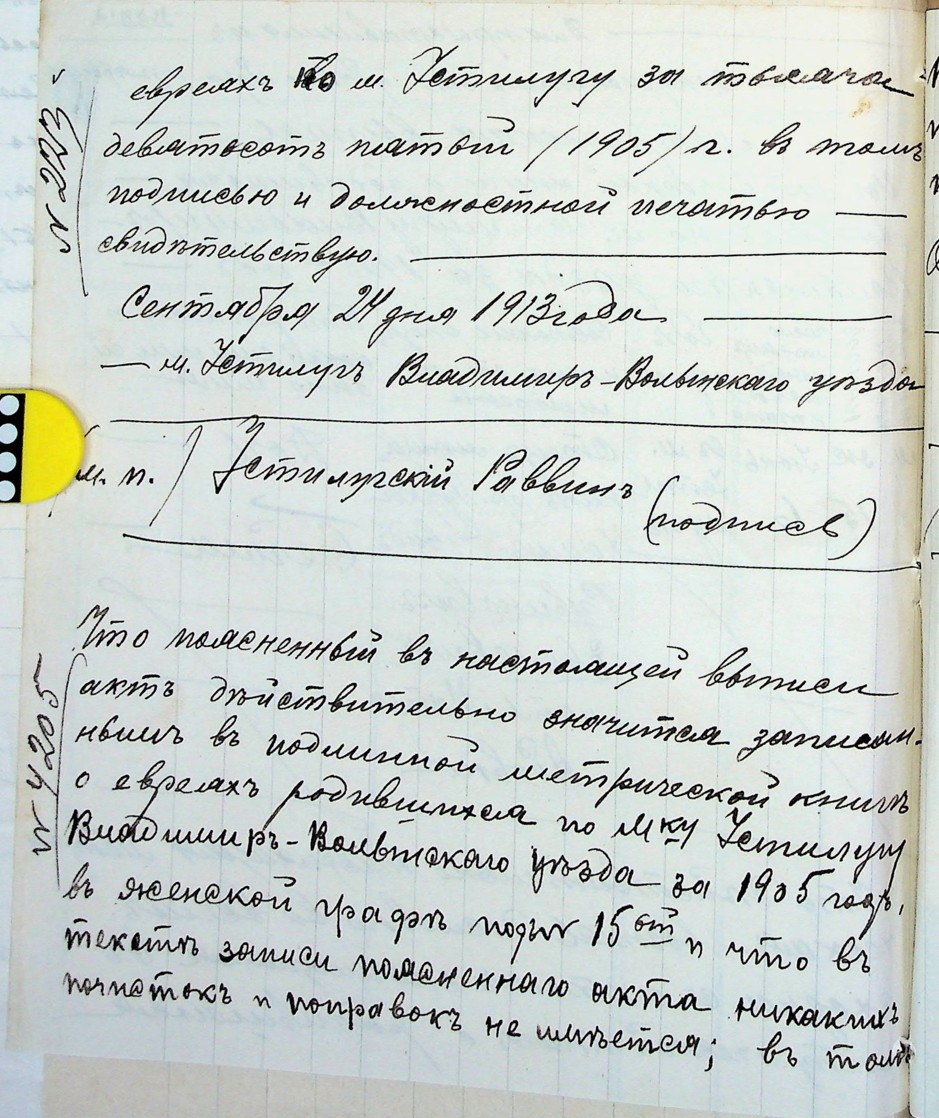 № 223
евреахъ по м. Устилугу за тысяча
девятьсотъ пятый (1905) г. въ томъ
подписью и должностной печатью —
свидѣтельствую. —
Сентября 24 дня 1913 года —
— м. Устилугъ Владимиръ-Волынскаго уѣзда
м. п.) Устилугскій Раввинъ
(подпись)
№ 4205
Что поясненный въ настоящей выписи
актъ дѣйствительно значится записан-
нымъ въ подлинной метрической книгѣ
о евреахъ родившихся по м-ку Устилугу
Владимиръ-Волынскаго уѣзда за 1905 годъ,
въ женской графѣ подъ № 15ым и что въ
текстѣ записи поясненнаго акта никакихъ
почистокъ и поправокъ не имѣется; въ томъ